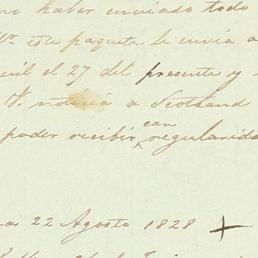 no haber enviado todo
este paquete le envia a
el 27 del presente y
V. noticia a Scotland
poder recibir con regularida
22 Agosto 1828 +